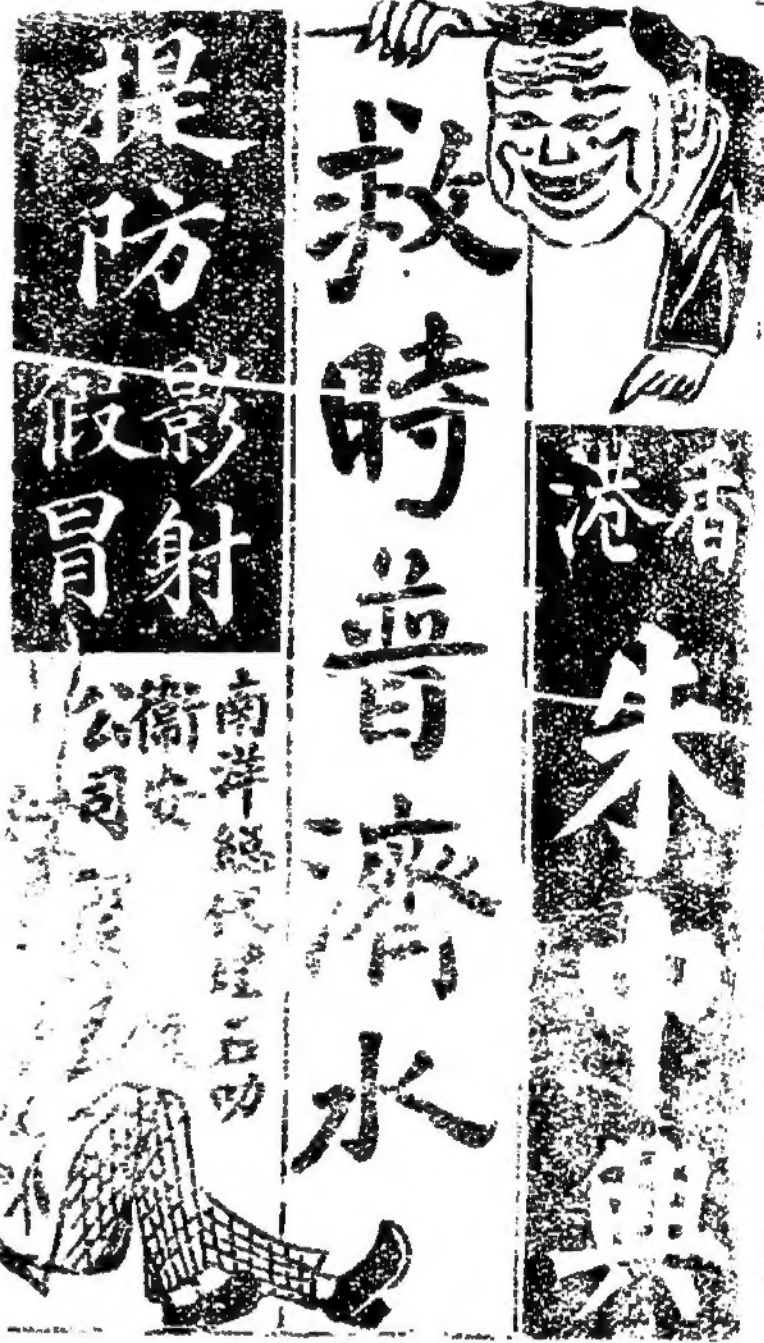 香港
朱中興
救時普濟水
提防
影射
假冒
南洋總代理石叻
衛安
公司